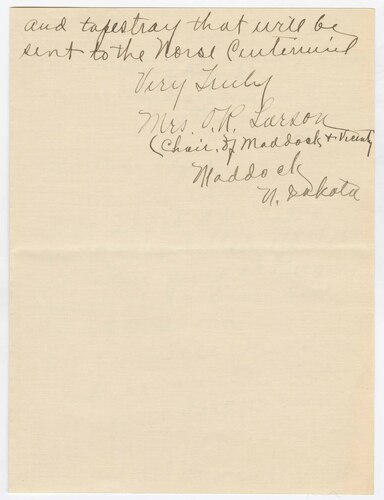 and tapestray that will be
sent to the Norse Centennial
Very Truly
Mrs. O.R. Larson
(Chair. of Maddock & Vicinity
Maddock
N. Dakota